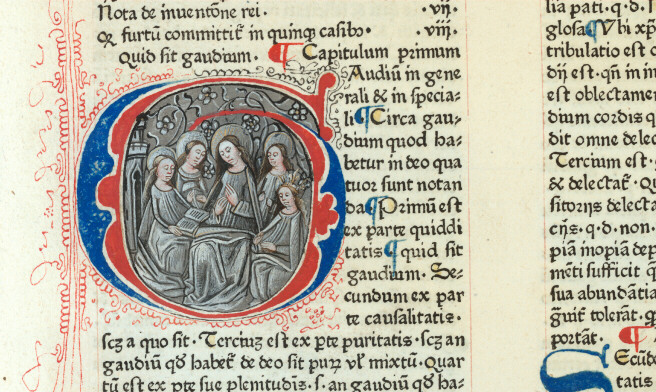 Nota de inuentōne rei. .vij.
Q furtū committit̃ in quinq casibꝰ. .viij.
Quid sit gaudium. ¶ Capitulum primum
GAudiū in gene
rali & in specia⸗
li ¶ Circa gau⸗
dium quod ha⸗
betur in deo qua
tuor sunt notan
da ¶ Primū est
ex parte quiddi
tatis ¶ quid sit
gaudium. Se⸗
cundum ex par
te causalitatis.
scꝫ a quo sit. Tercius est ex ꝑte puritatis. scꝫ an
gaudiū qd̄ habet̃ de deo sit purꝫ vl̄ mixtū. Quar
tū est ex ꝑte sue plenitudis. s. an gaudiū qd̄ ha⸗
lia pati. q. d.
glosa ¶ Vbi xp̄
tribulatio est
dij est. qn̄ in
est oblectame
dium cordis q
dit omne delec
Tercium est
& delectat̃.
sitorijs delecta
cijs. q. d. non.
piā inopiā dep
mēti sufficit
sua abundātia
tolerāt.
portāt. ¶
SEcūdo
tatis